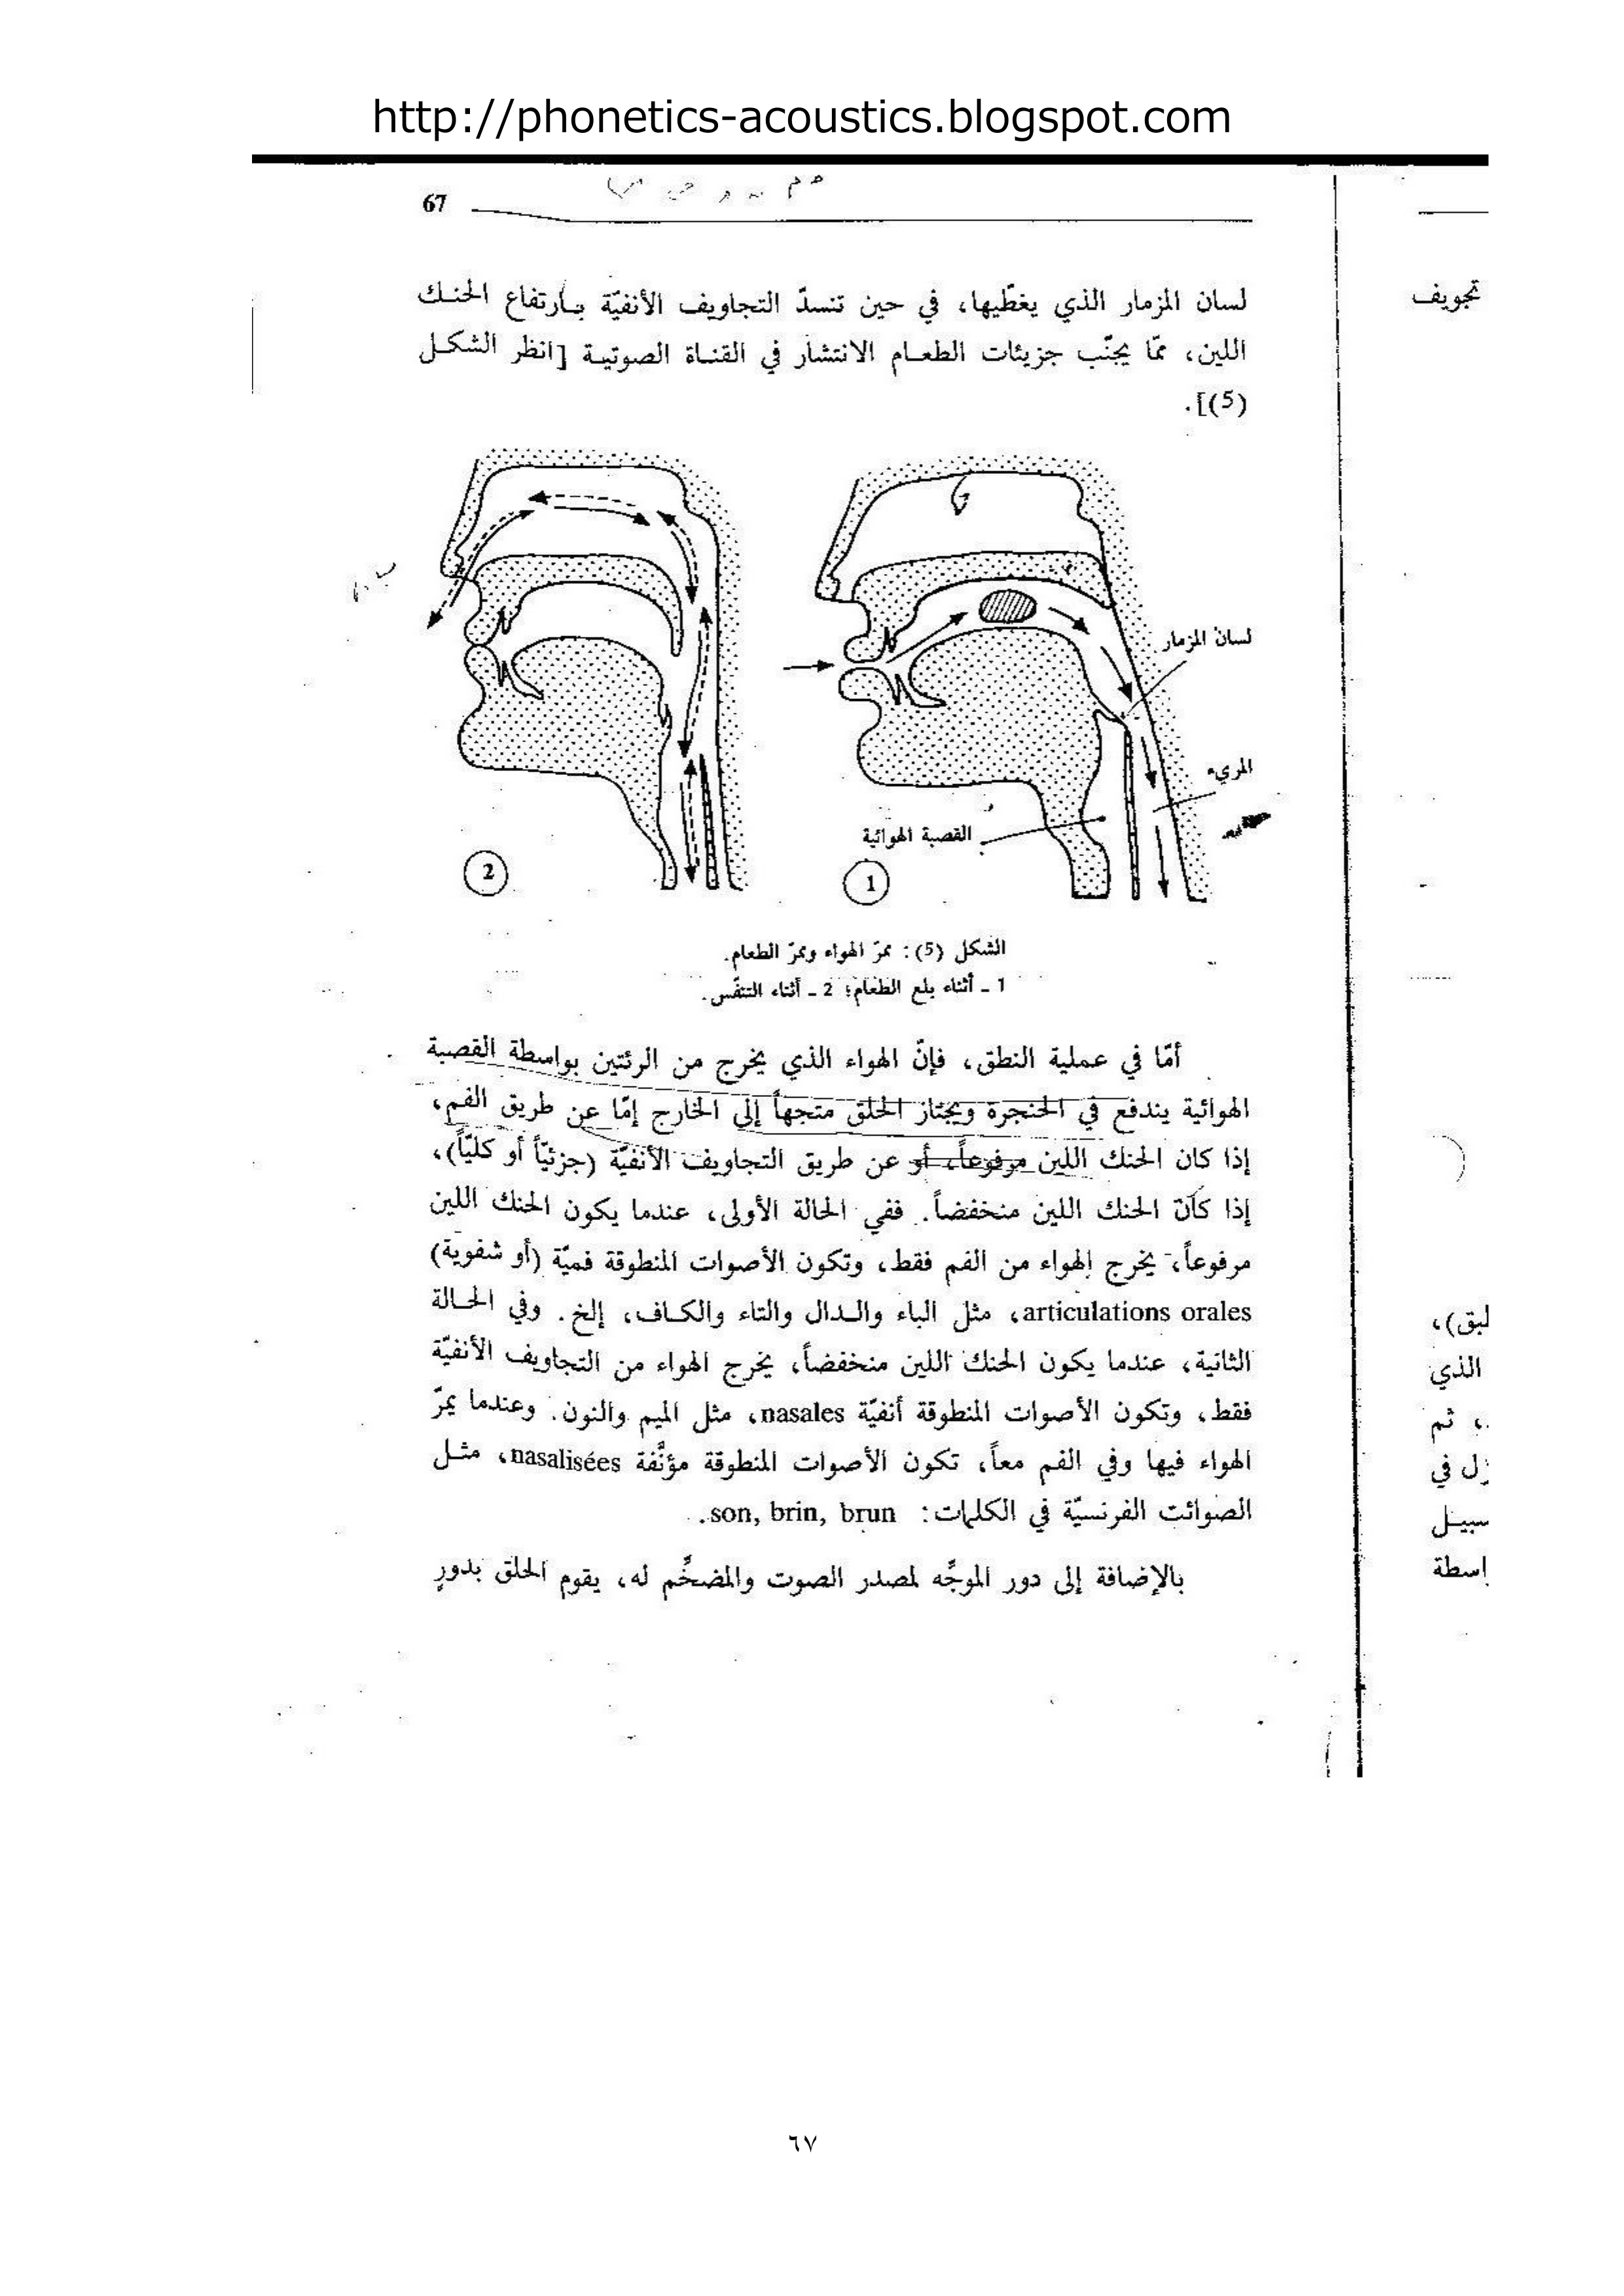 http://phonetics-acoustics.blogspot.com
67
لسان المزمار الذي يغطّيها، في حين تنسدّ التجاويف الأنفيّة بـارتفاع الحنـك
اللين، ممّا يجنّب جزيئات الطعـام الانتشار في القنـاة الصوتيـة [انظر الشكـل
(5)].
لسان المزمار
المريء
القصبة الهوائية
2
1
الشكل (5): ممرّ الهواء وممرّ الطعام.
1 ـ أثناء بلع الطعام؛ 2 ـ أثناء التنفّس.
أمّا في عملية النطق، فإنّ الهواء الذي يخرج من الرئتين بواسطة القصبة
الهوائية يندفع في الحنجرة ويجتاز الحلق متجهاً إلى الخارج إمّا عن طريق الفم،
إذا كان الحنك اللين مرفوعاً، أو عن طريق التجاويف الأنفيّة (جزئيّاً أو كليّاً)،
إذا كان الحنك اللين منخفضاً. ففي الحالة الأولى، عندما يكون الحنك اللين
مرفوعاً، يخرج الهواء من الفم فقط، وتكون الأصوات المنطوقة فميّة (أو شفوية)
articulations orales، مثل الباء والـدال والتاء والكـاف، إلخ. وفي الحـالة
الثانية، عندما يكون الحنك اللين منخفضاً، يخرج الهواء من التجاويف الأنفيّة
فقط، وتكون الأصوات المنطوقة أنفيّة nasales، مثل الميم والنون. وعندما يمرّ
الهواء فيها وفي الفم معاً، تكون الأصوات المنطوقة مؤنَّفة nasalisées، مثـل
الصوائت الفرنسيّة في الكلمات: son, brin, brun.
بالإضافة إلى دور الموجِّه لمصدر الصوت والمضخِّم له، يقوم الحلق بدورٍ
تجويف
لبق)،
الذي
، ثم
زل في
سبيـل
اسطة
٦٧